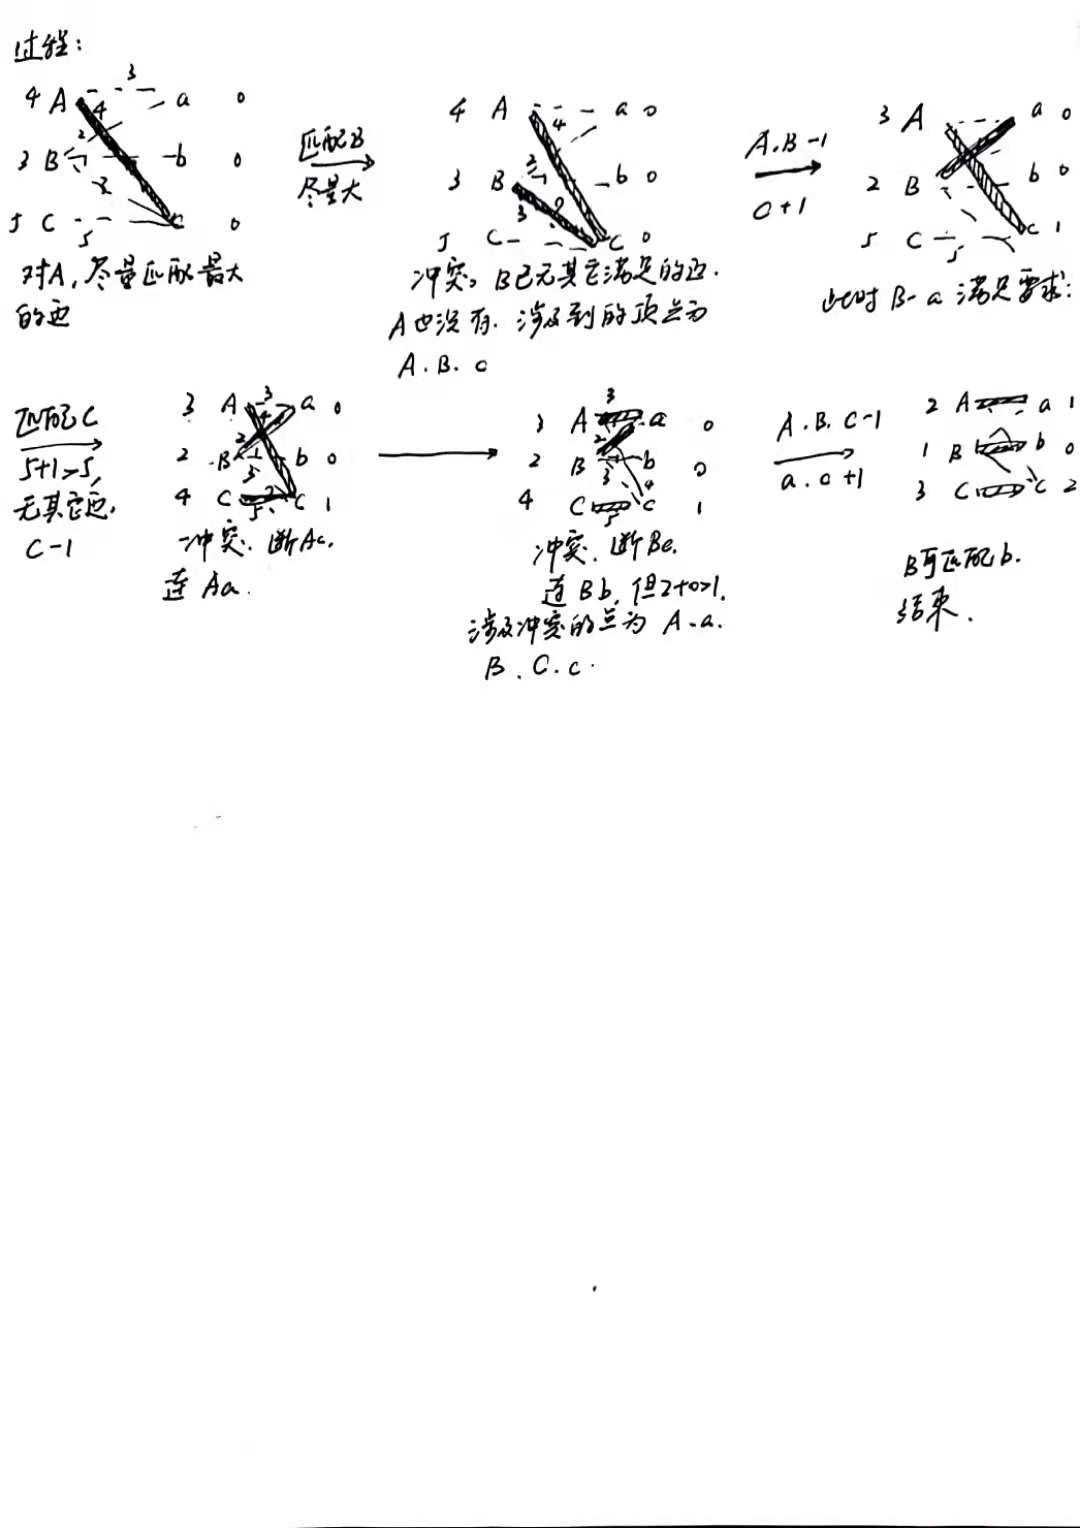 过程:
3
4 A a 0
4
2
3 B 1 b 0
3
5 C c 0
5
对A,尽量匹配最大
的边
匹配B
尽量大
4 A a 0
4
2
3 B 1 b 0
3
5 C c 0
冲突。B已无其它满足的边.
A也没有.涉及到的顶点为
A.B.c
A.B-1
c+1
3 A a 0
2 B b 0
5 C c 1
5
此时B-a满足要求:
匹配C
5+1>5,
无其它边,
C-1
3 A 3 a 0
4
2
2 B 1 b 0
3
4 C c 1
5
冲突.断Ac,
连Aa.
3
3 A a 0
2
2 B b 0
3 4
4 C c 1
5
冲突.断Ba.
连Bb,但2+0>1,
涉及冲突的点为A.a.
B.C.c.
A.B.C-1
a.c+1
2 A a 1
1 B b 0
3 C c 2
B可匹配b.
结束.